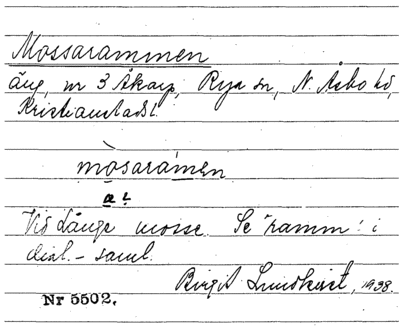 Mossarammen
äng, nr 3 Åkarp, Rya sn, N. Åsbo hd,
Kristianstads l.
mòsaràmen
a ṭ
Vid Länge mosse. Se "ramm" i
dial.-saml.
Birgit Lundkvist, 1938.
Nr 5502.